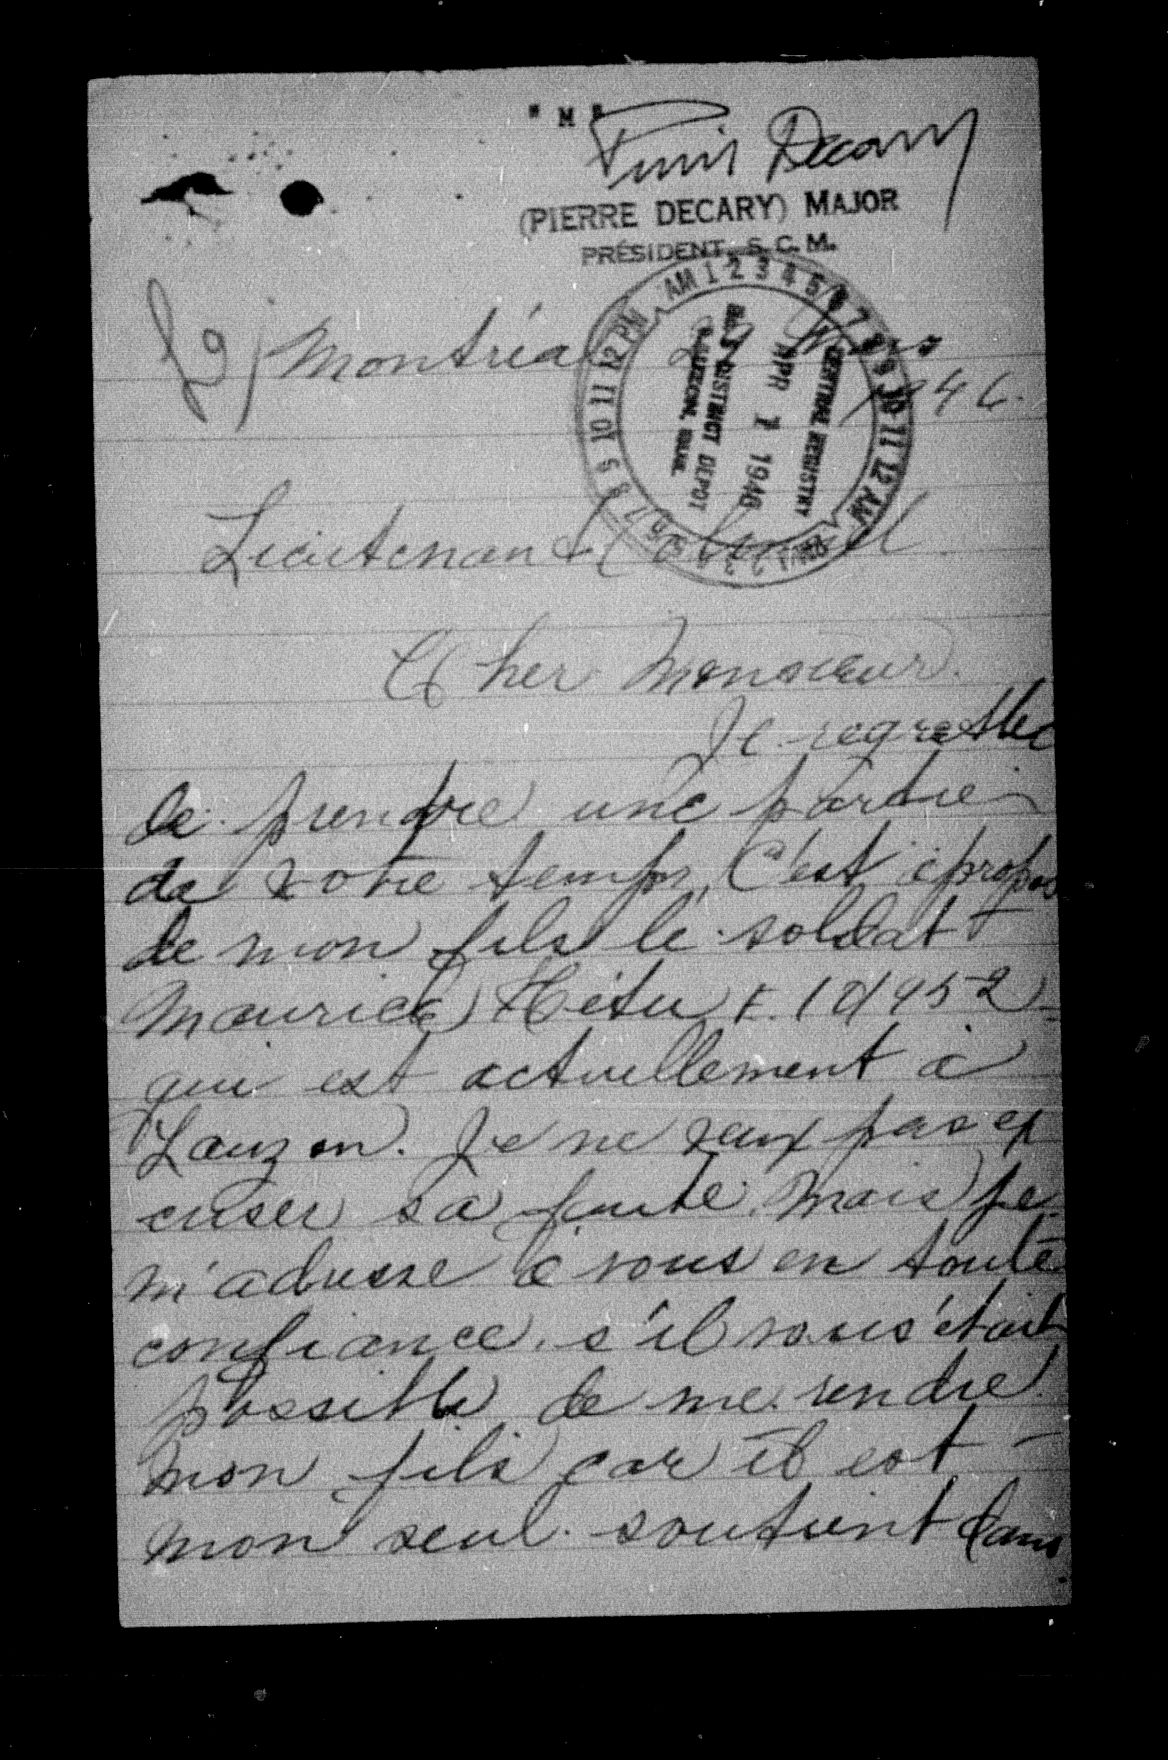 "M"
Pierre Decary
(PIERRE DECARY) MAJOR
PRÉSIDENT, S.C.M.
AM 1 2 3 4 5 6 7 8 9 10 11 12 AM
1 2 3 4 5 6 7 8 9 10 11 12 PM
CENTRAL REGISTRY
APR 1 1946
DISTRICT DEPOT
LAUZON, QUE.
Montréal Mars
1946.
Lieutenant Colonel
Cher Monsieur.
Je regrette
de prendre une partie
de votre temps, C'est àpropos
de mon fils le soldat
Maurice Hétu E.
qui est actuellement à
Lauzon. Je ne veux pas ex
cuser sa faute. Mais je
m'adresse à vous en toute
confiance. s'il vous était
possible de me rendre
mon fils car il est
mon seul soutient dans